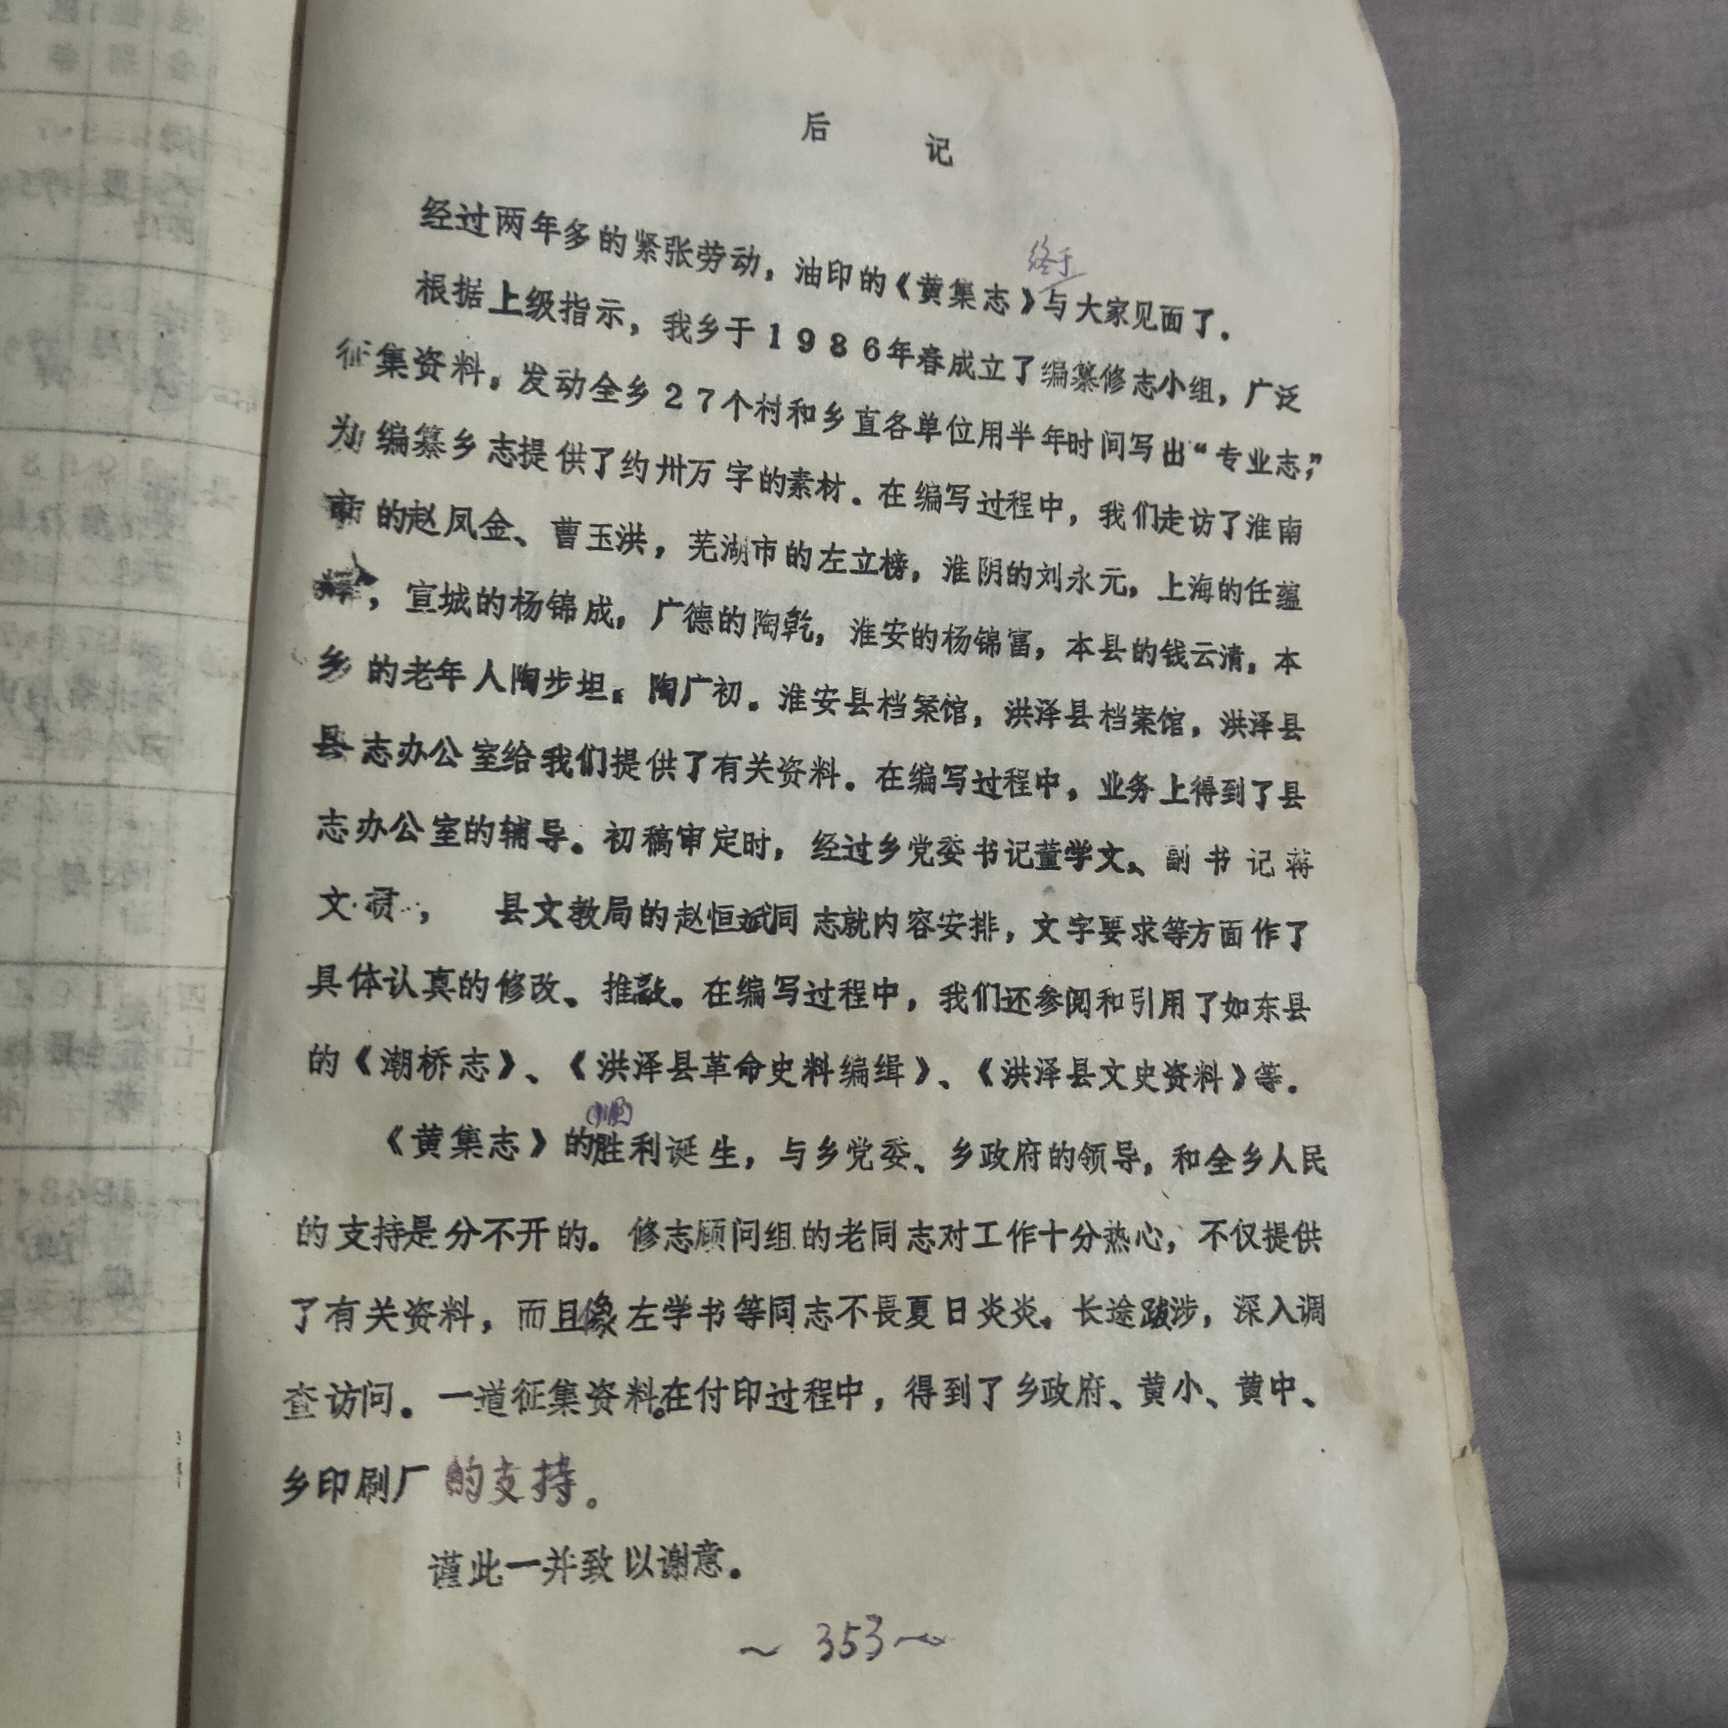 后 记
经过两年多的紧张劳动，油印的《黄集志》终于与大家见面了．
根据上级指示，我乡于1986年春成立了编纂修志小组，广泛
征集资料。发动全乡27个村和乡直各单位用半年时间写出“专业志，”
为编纂乡志提供了约卅万字的素材．在编写过程中，我们走访了淮南
市的赵凤金、曹玉洪，芜湖市的左立榜，淮阴的刘永元，上海的任蕴
，宣城的杨锦成，广德的陶乾，淮安的杨锦富，本县的钱云清，本
乡的老年人陶步坦。陶广初。淮安县档案馆，洪泽县档案馆，洪泽县
县志办公室给我们提供了有关资料．在编写过程中，业务上得到了县
志办公室的辅导。初稿审定时，经过乡党委书记董学文、副书记蒋
文，县文教局的赵恒斌同志就内容安排，文字要求等方面作了
具体认真的修改、推敲。在编写过程中，我们还参阅和引用了如东县
的《潮桥志》、《洪泽县革命史料编缉》、《洪泽县文史资料》等．
《黄集志》的胜利诞生，与乡党委、乡政府的领导，和全乡人民
的支持是分不开的。修志顾问组的老同志对工作十分热心，不仅提供
了有关资料，而且像左学书等同志不畏夏日炎炎，长途跋涉，深入调
查访问。一道征集资料。在付印过程中，得到了乡政府、黄小、黄中、
乡印刷厂的支持。
谨此一并致以谢意．
～353～